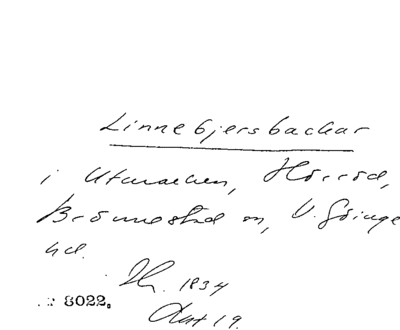 Linnebjersbackar
i Utmarken, Hörröd,
Brönnestad sn, V. Göinge
hd.
1834
8022.
Akt 19.